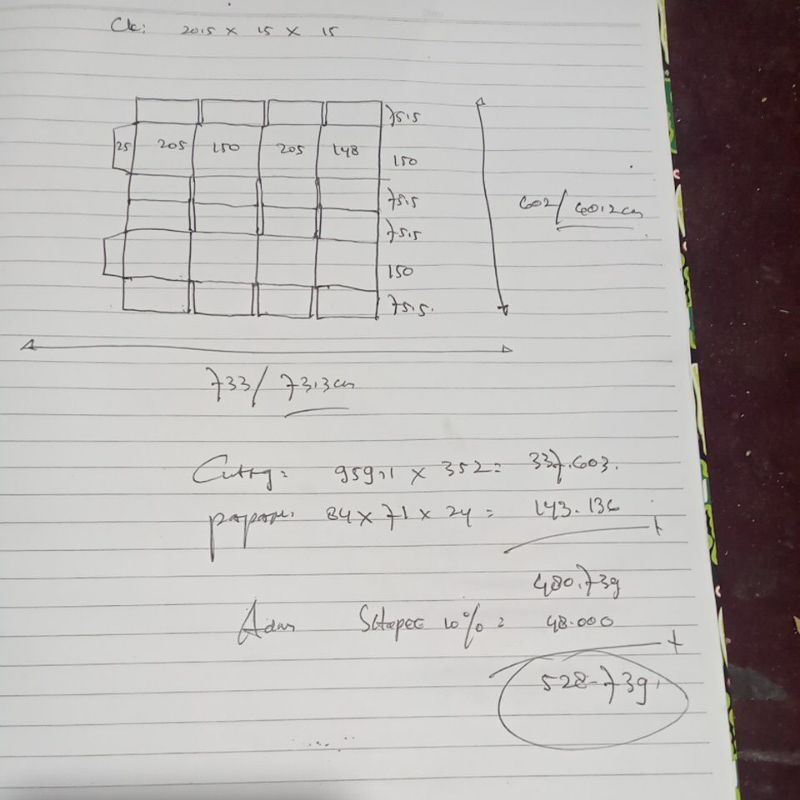 Uk: 20.5 x 15 x 15
75.5
25 205 150 205 148 150
75.5
602/60.2cm
75.5
150
75.5.
733/73.3cm
Cutting: 959.1 x 352 = 337.603.
papan: 84 x 71 x 24 = 143.136
+
480.739
10% = 48.000
+
528.739